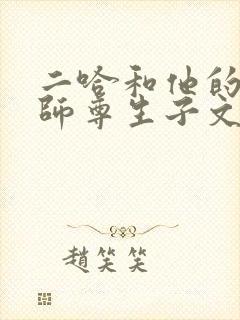 二哈和他的
師尊生子文
趙笑笑